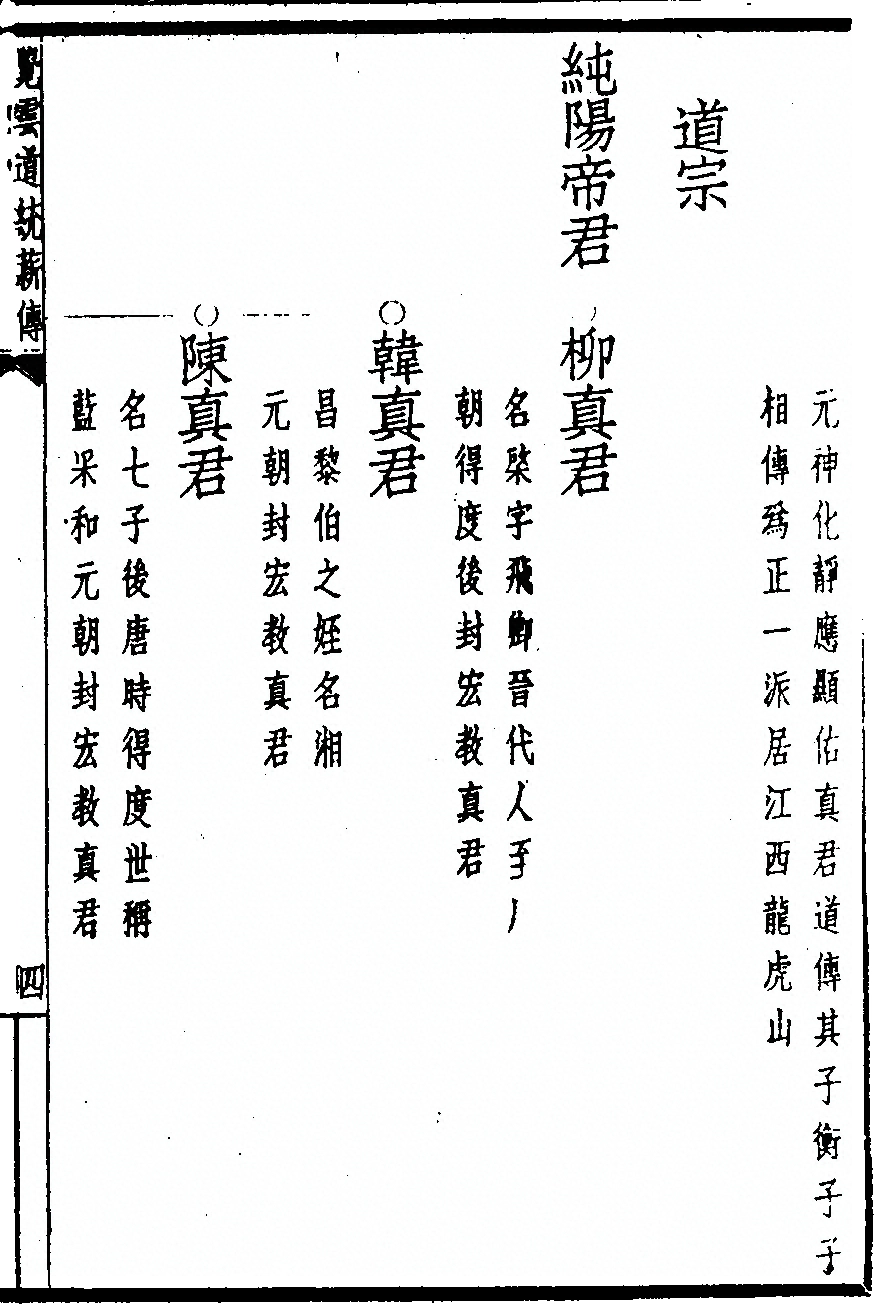 元神化靜應顯佑真君道傳其子衡子子
相傳爲正一派居江西龍虎山
道宗
純陽帝君 柳真君
名棨字飛卿晉代人至
朝得度後封宏教真君
韓真君
昌黎伯之姪名湘
元朝封宏教真君
陳真君
名七子後唐時得度世稱
藍采和元朝封宏教真君
覺雲道統薪傳
四